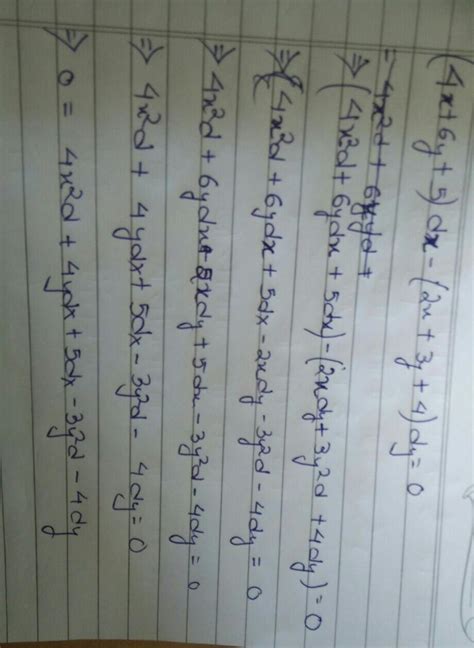 (4x+6y+5)dx - (2x+3y+4)dy=0
= 4x²d + 6xyd +
⇒ (4x²d + 6ydx + 5dx) - (2xdy + 3y²d + 4dy) = 0
⇒ (4x²d + 6ydx + 5dx - 2xdy - 3y²d - 4dy = 0
⇒ 4x²d + 6ydx - 2xdy + 5dx - 3y²d - 4dy = 0
⇒ 4x²d + 4ydx + 5dx - 3y²d - 4dy = 0
⇒ 0 = 4x²d + 4ydx + 5dx - 3y²d - 4dy